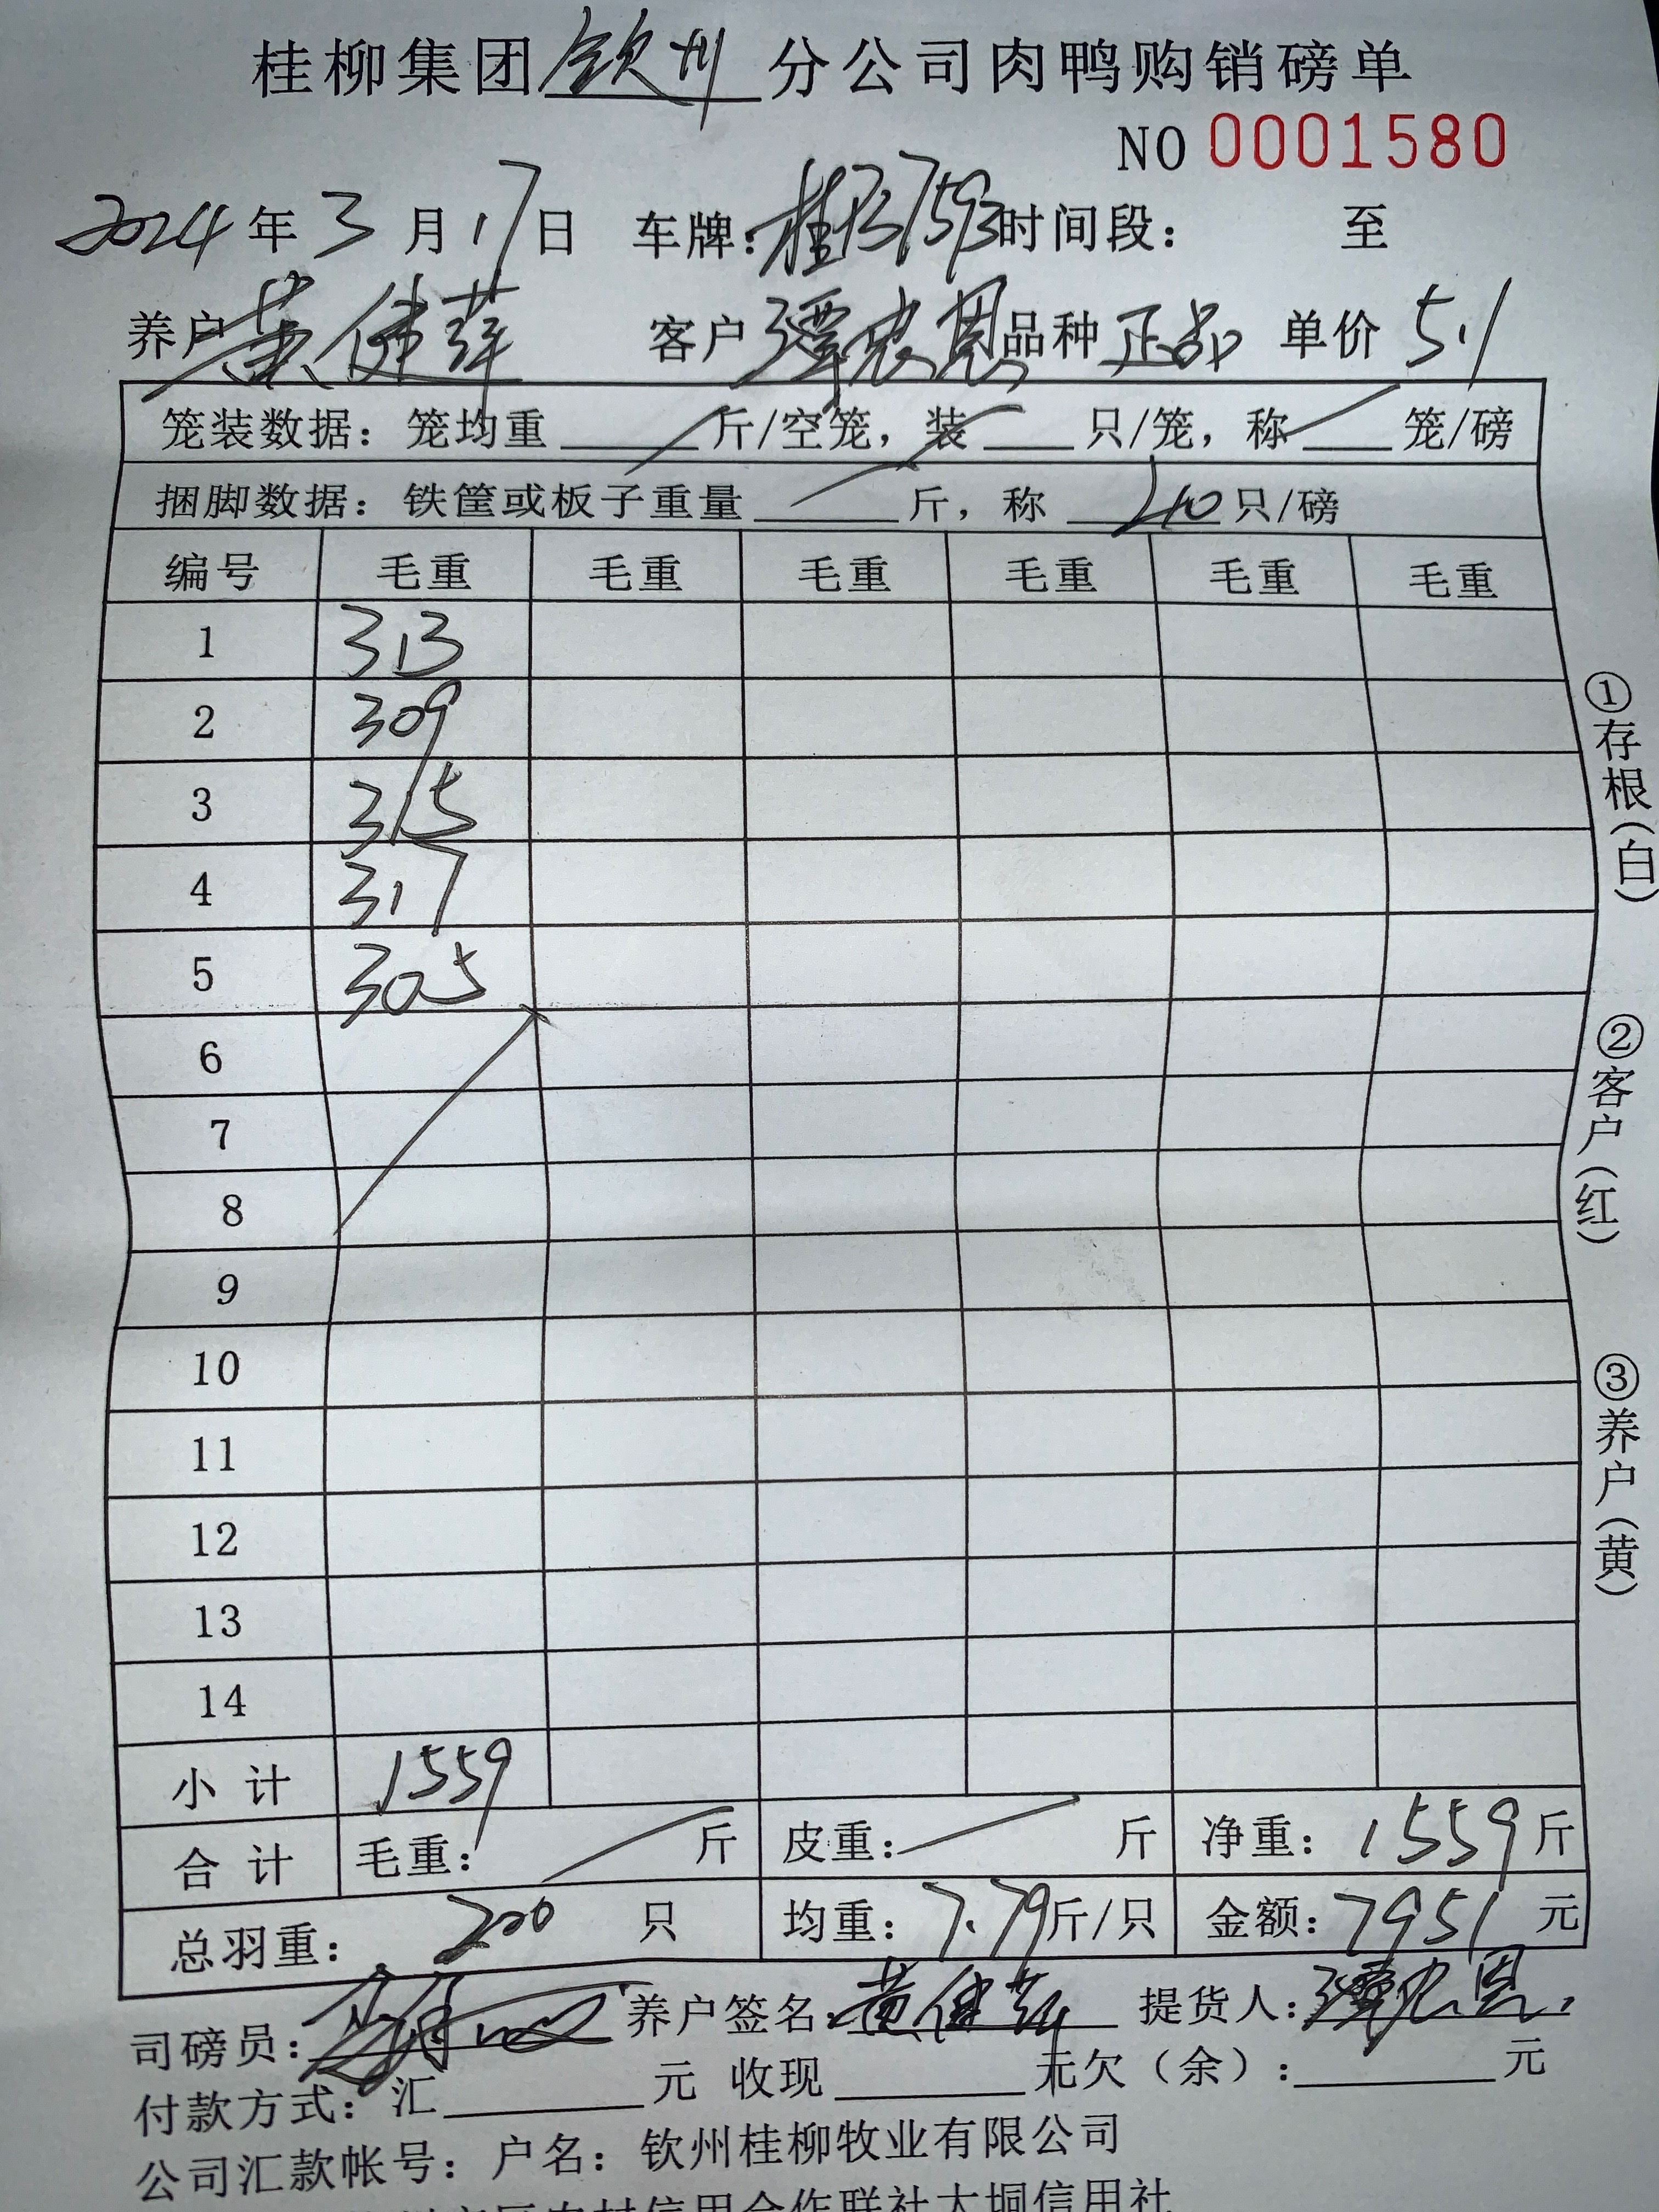 桂柳集团钦州分公司肉鸭购销磅单
NO 0001580
2024年3月17日 车牌: 时间段: 至
养户 黄健萍 客户 谭农恩 品种 正品 单价 5.1
笼装数据: 笼均重 斤/空笼, 装 只/笼, 称 笼/磅
捆脚数据: 铁筐或板子重量 斤, 称 40 只/磅
编号 毛重 毛重 毛重 毛重 毛重 毛重
1 313
2 309
3 315
4 317
5 305
6
7
8
9
10
11
12
13
14
小计 1559
合计 毛重: 斤 皮重: 斤 净重: 1559 斤
总羽重: 200 只 均重: 7.79 斤/只 金额: 7951 元
司磅员: 养户签名: 提货人:
付款方式: 汇 元 收现 元 欠(余): 元
公司汇款帐号: 户名: 钦州桂柳牧业有限公司
农村信用合作联社大垌信用社
①存根(白)
②客户(红)
③养户(黄)